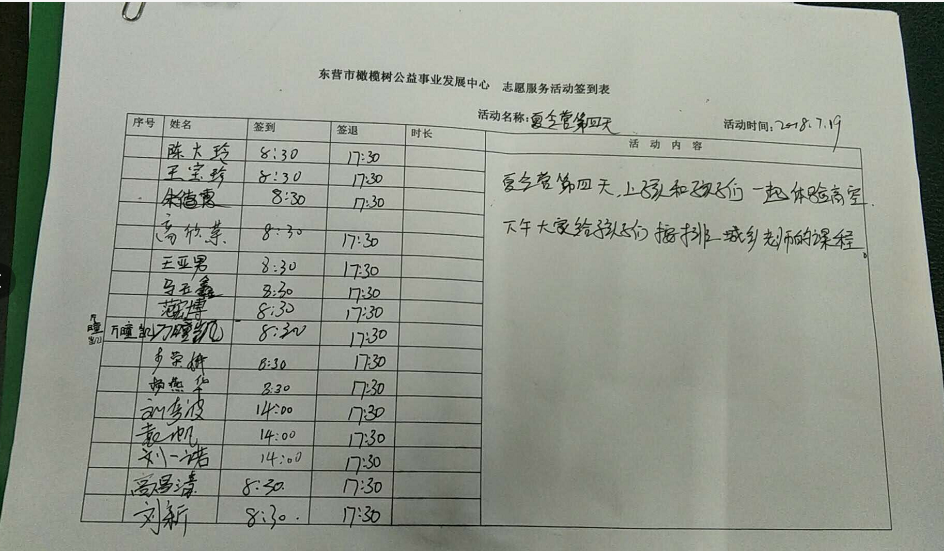 东营市橄榄树公益事业发展中心 志愿服务活动签到表
活动名称:夏令营第四天 活动时间:2018.7.19
序号 姓名 签到 签退 时长 活动内容
陈大玲 8:30 17:30
王宝珍 8:30 17:30
8:30 17:30
高欣荣 8:30 17:30
王亚男 8:30 17:30
马玉鑫 8:30 17:30
范宏博 8:30 17:30
万瞳凯 万瞳凯 万瞳凯 8:30 17:30
8:30 17:30
杨燕华 8:30 17:30
刘李波 14:00 17:30
袁帆 14:00 17:30
刘一诺 14:00 17:30
高昌清 8:30. 17:30
刘新 8:30. 17:30
夏令营第四天,上孩和孩子们一起体验高空.
下午大家给孩子们 按排 城乡老师的课程.